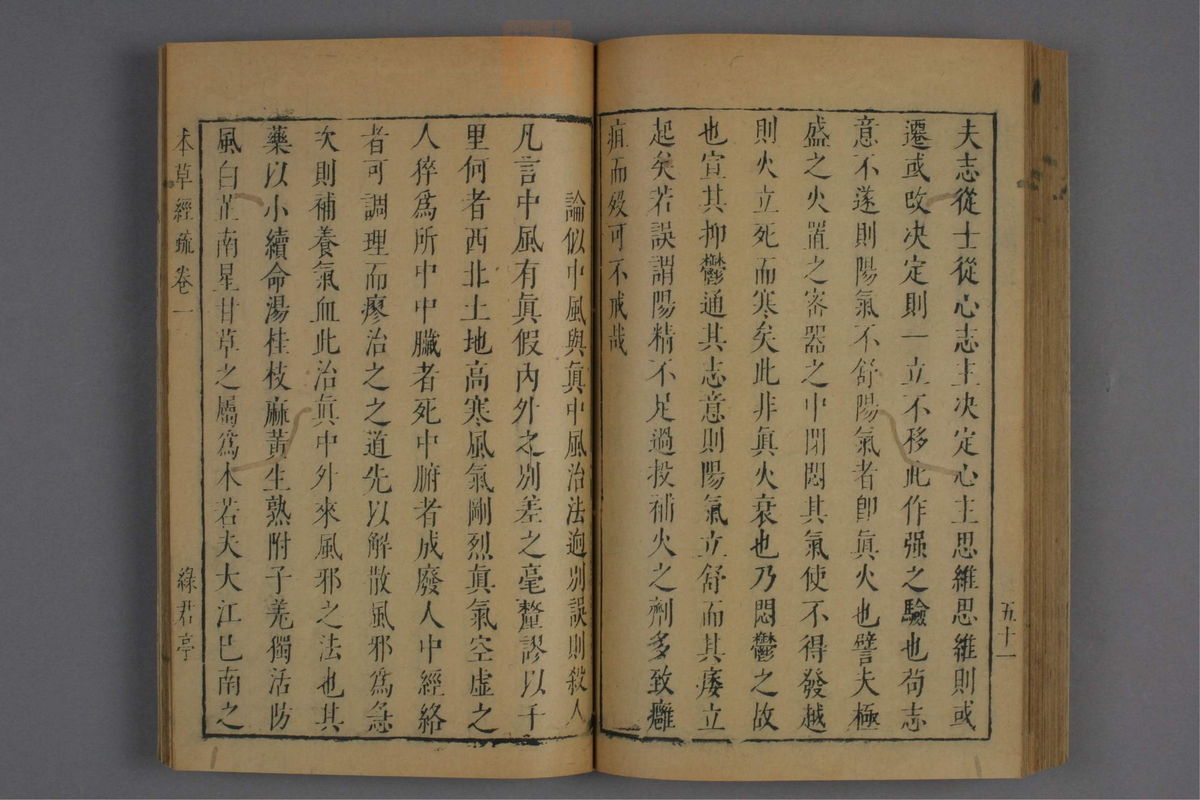 夫志從士從心志主決定心主思維思維則或
遷或改决定則一立不移此作强之驗也苟志
意不遂則陽氣不舒陽氣者卽眞火也譬夫極
盛之火置之密器之中閉悶其氣使不得發越
則火立死而寒矣此非眞火衰也乃悶鬱之故
也宣其抑鬱通其志意則陽氣立舒而其痿立
起矣若誤謂陽精不足過投補火之劑多致癰
疽而殁可不戒哉
五十一
論似中風與眞中風治法逈別誤則殺人
凡言中風有眞假內外之別差之毫釐謬以千
里何者西北土地高寒風氣剛烈眞氣空虛之
人猝爲所中中臟者死中腑者成廢人中經絡
者可調理而瘳治之之道先以解散風邪爲急
次則補養氣血此治眞中外來風邪之法也其
藥以小續命湯桂枝麻黃生熟附子羌獨活防
風白芷南星甘草之屬爲本若夫大江已南之
本草經疏卷一
綠君亭